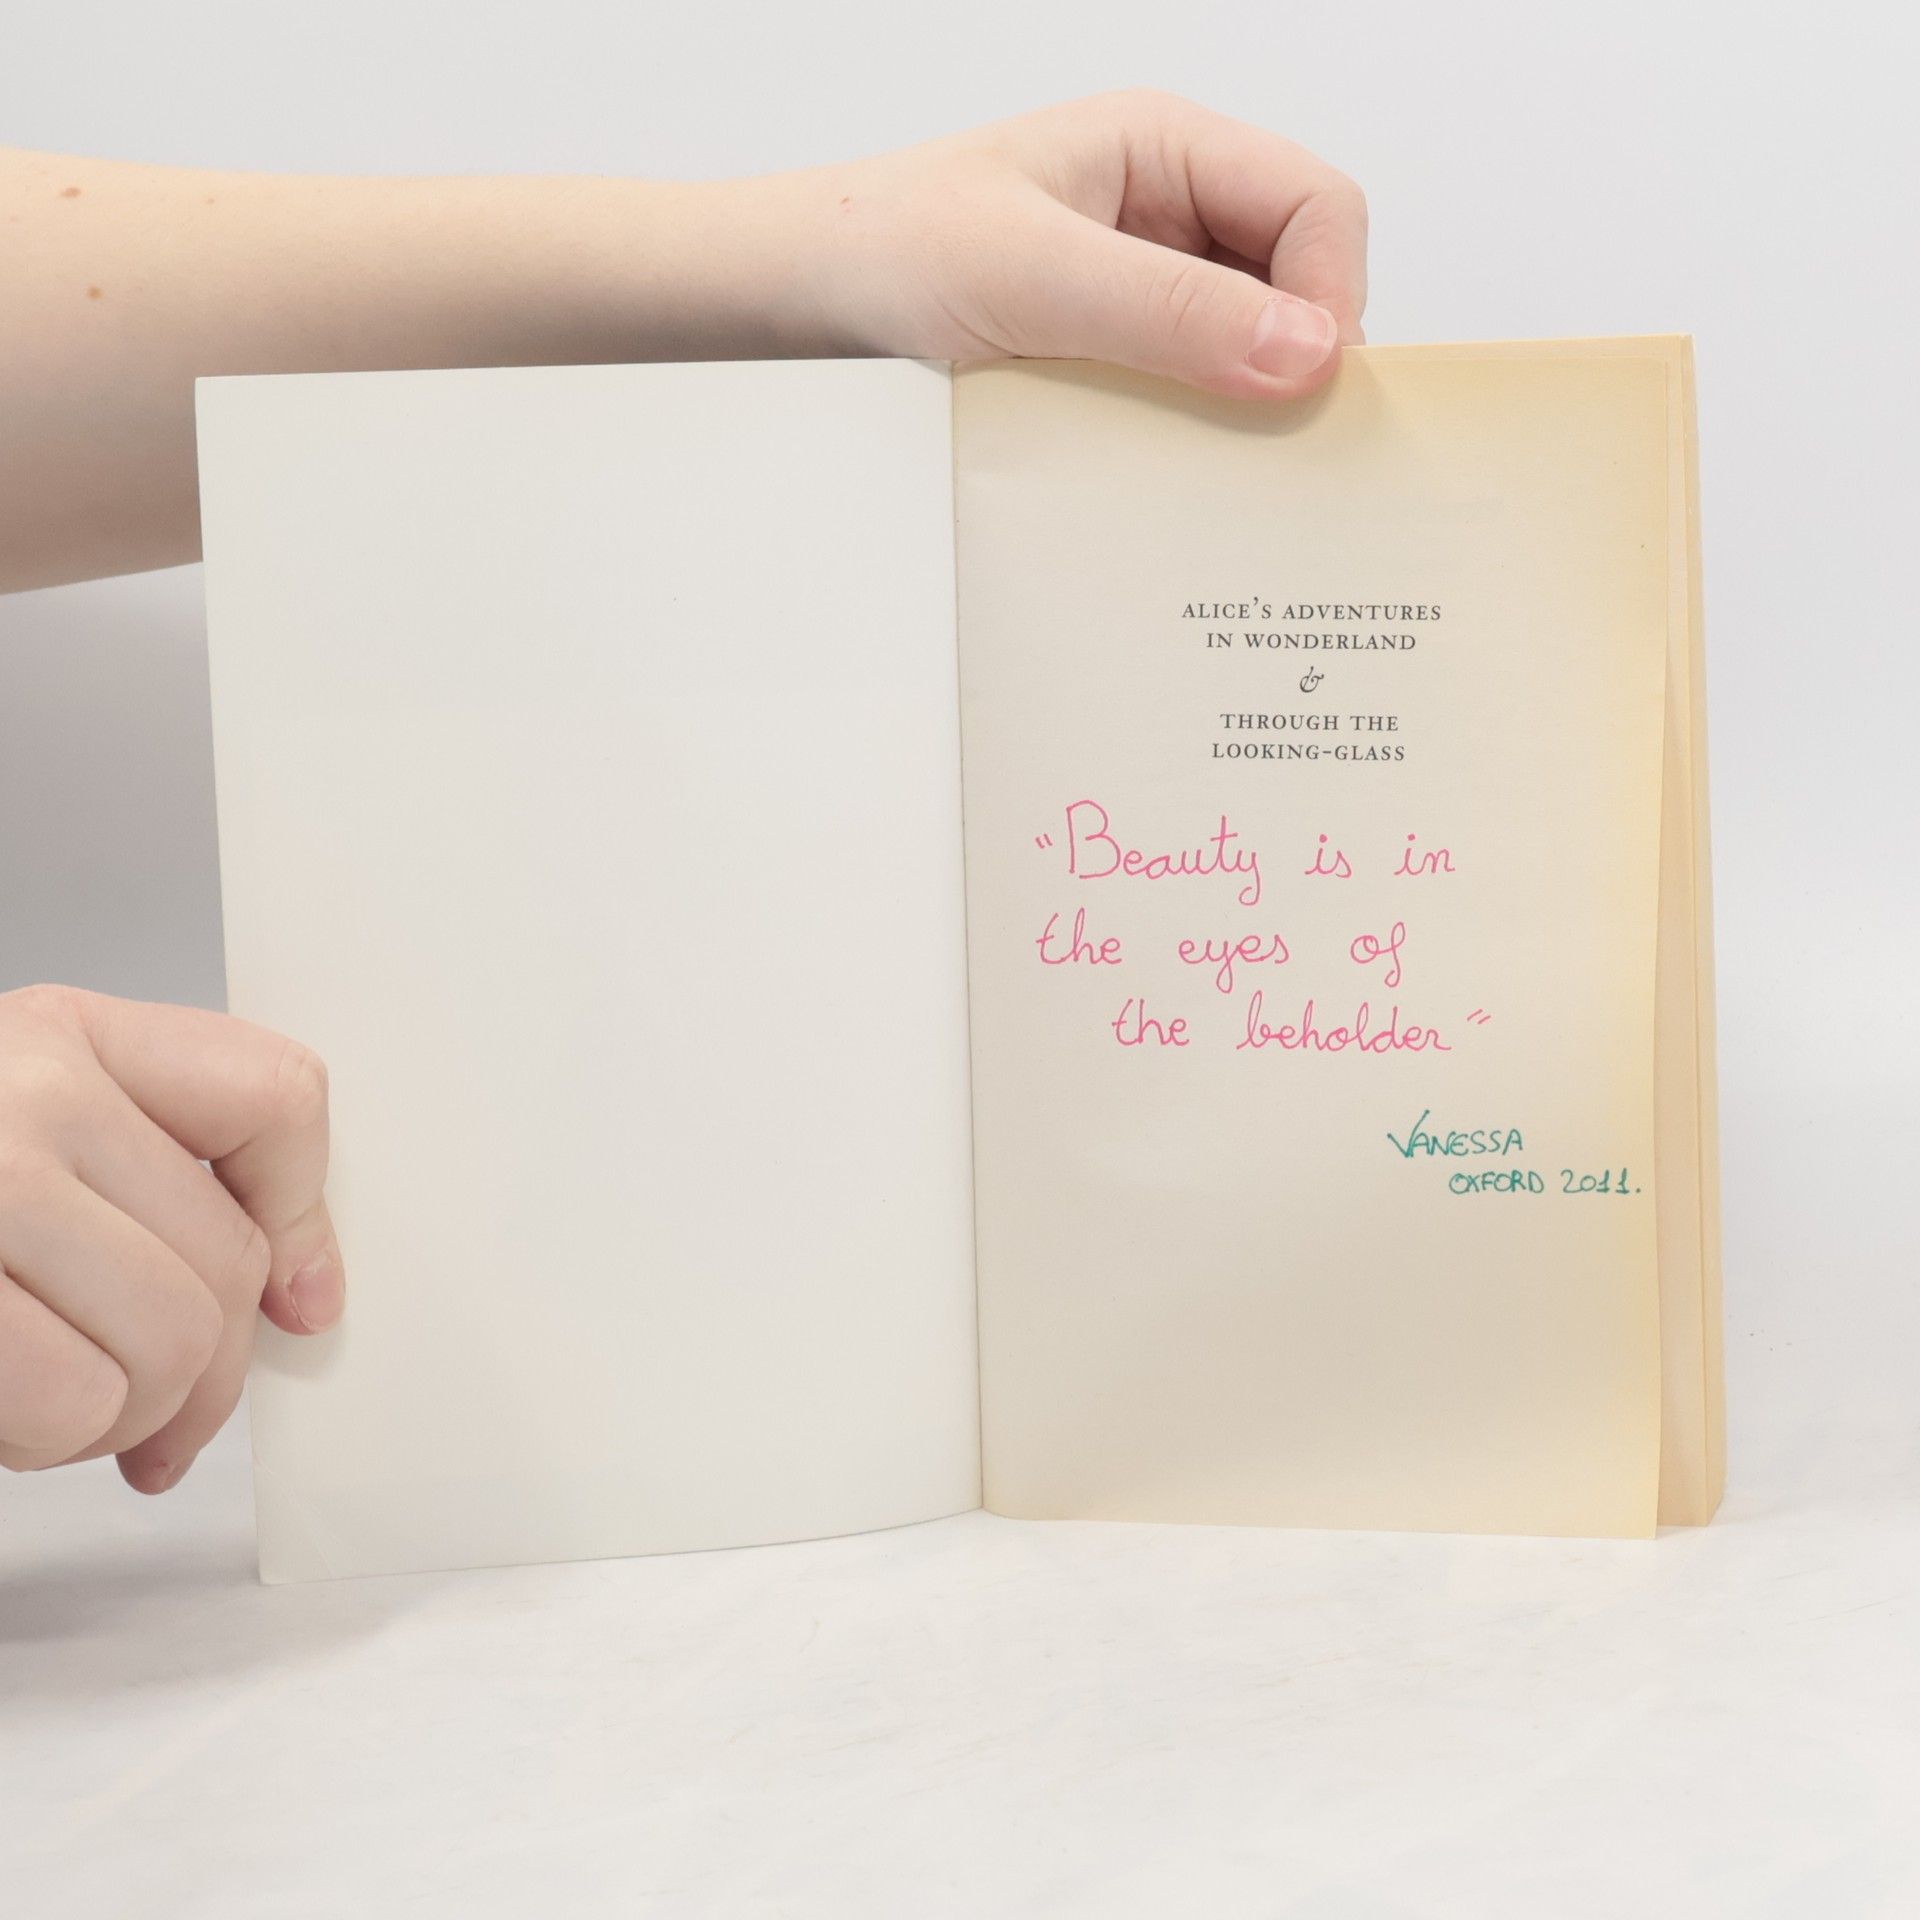 ALICE'S ADVENTURES
IN WONDERLAND
&
THROUGH THE
LOOKING-GLASS
"Beauty is in
the eyes of
the beholder"
VANESSA
OXFORD 2011.